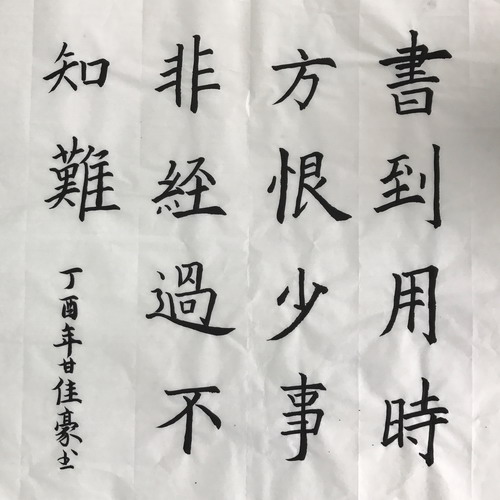 書到用時
方恨少事
非經過不
知難
丁酉年甘佳豪书